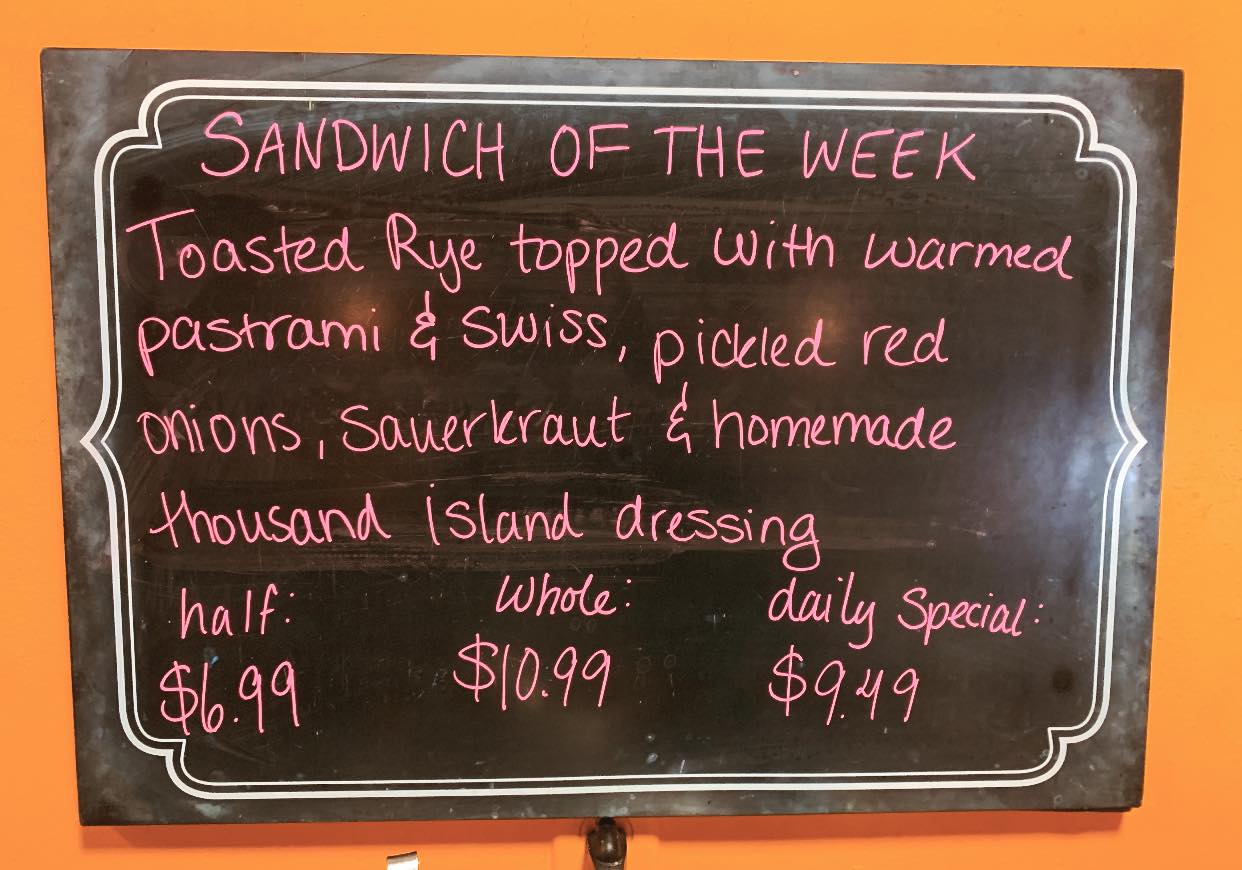 SANDWICH OF THE WEEK
Toasted Rye topped with warmed
pastrami & Swiss, pickled red
onions, Sauerkraut & homemade
thousand island dressing
half: Whole: daily Special:
$6.99 $10.99 $9.49